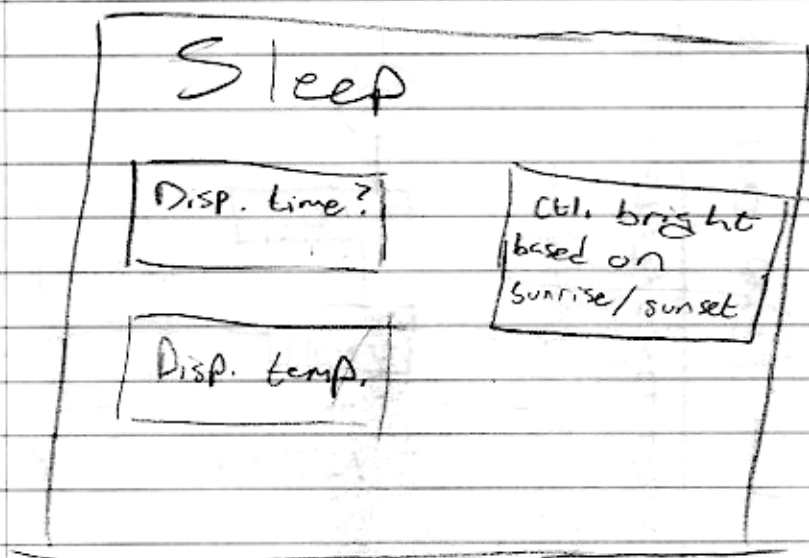 Sleep
Disp. time?
Disp. temp.
Ctl. bright
based on
sunrise/sunset